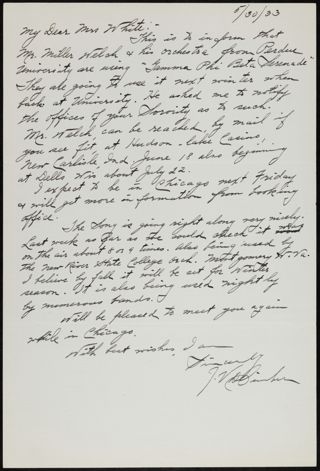 5/30/33
My Dear Mrs White:-
This is to inform that
Mr. Miller Welch & his orchestra from Purdue
University are using "Gamma Phi Beta Serenade"
They are going to use it next winter when
back at University. He asked me to notify
the offices of your Sorority as to such.
Mr. Welch can be reached by mail if
you see fit, at Hudson-Lake Casino,
New Carlisle, Ind June 18 also beginning
at Dells Wis about July 22.
I expect to be in Chicago next Friday
& will get more information from booking
office.
The Song is going right along very nicely.
Last week as far as we could check it
on the air about 6 or 7 times. Also being used by
the New River State College Orch. Montgomery W. Va.
I believe by fall it will be set for Winter
season. It is also being used nightly
by numerous bands.
Will be pleased to meet you again
while in Chicago.
With best wishes, I am
Sincerely